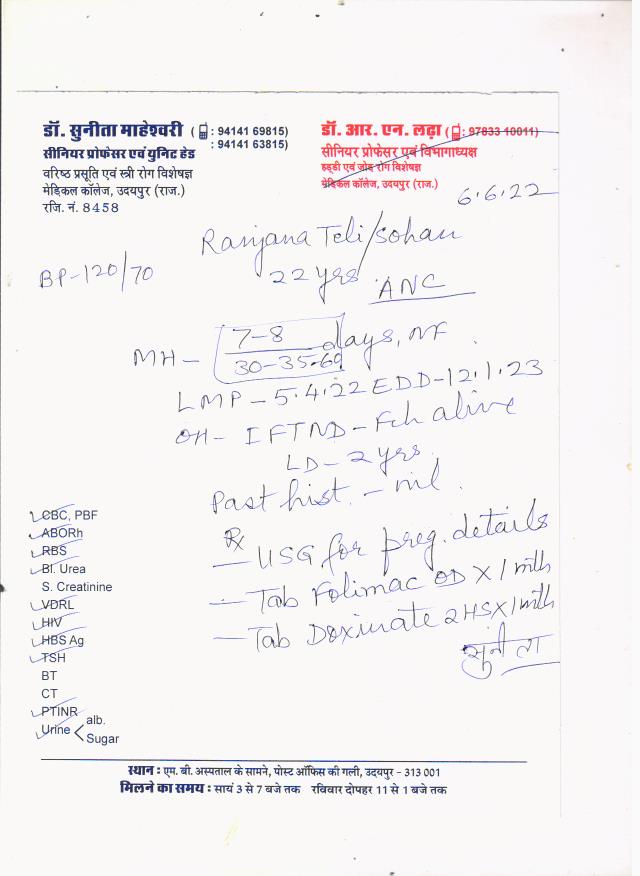 डॉ. सुनीता माहेश्वरी ( : 94141 69815)
: 94141 63815)
सीनियर प्रोफेसर एवं युनिट हेड
वरिष्ठ प्रसूति एवं स्त्री रोग विशेषज्ञ
मेडिकल कॉलेज, उदयपुर (राज.)
रजि. नं. 8458
डॉ. आर. एन. लढ़ा ( : 97833 10011)
सीनियर प्रोफेसर एवं विभागाध्यक्ष
हड्डी एवं जोड़ रोग विशेषज्ञ
मेडिकल कॉलेज, उदयपुर (राज.)
6.6.22
Ranjana Teli/Sohan
BP-120/70
22 yrs
ANC
MH - 7-8 days, NF
30-35-60
LMP - 5.4.22 EDD-12.1.23
OH- IFTND - Fch alive
LD - 2 yrs
Past hist. - nil.
Rx
- USG for preg. details
- Tab Folimac OD X 1 mth
- Tab Doxinate 2 HS X 1 mth
सुनीता
CBC, PBF
ABORh
RBS
Bl. Urea
S. Creatinine
VDRL
HIV
HBS Ag
TSH
BT
CT
PTINR
Urine < alb.
Sugar
स्थान : एम. बी. अस्पताल के सामने, पोस्ट ऑफिस की गली, उदयपुर - 313 001
मिलने का समय : सायं 3 से 7 बजे तक रविवार दोपहर 11 से 1 बजे तक